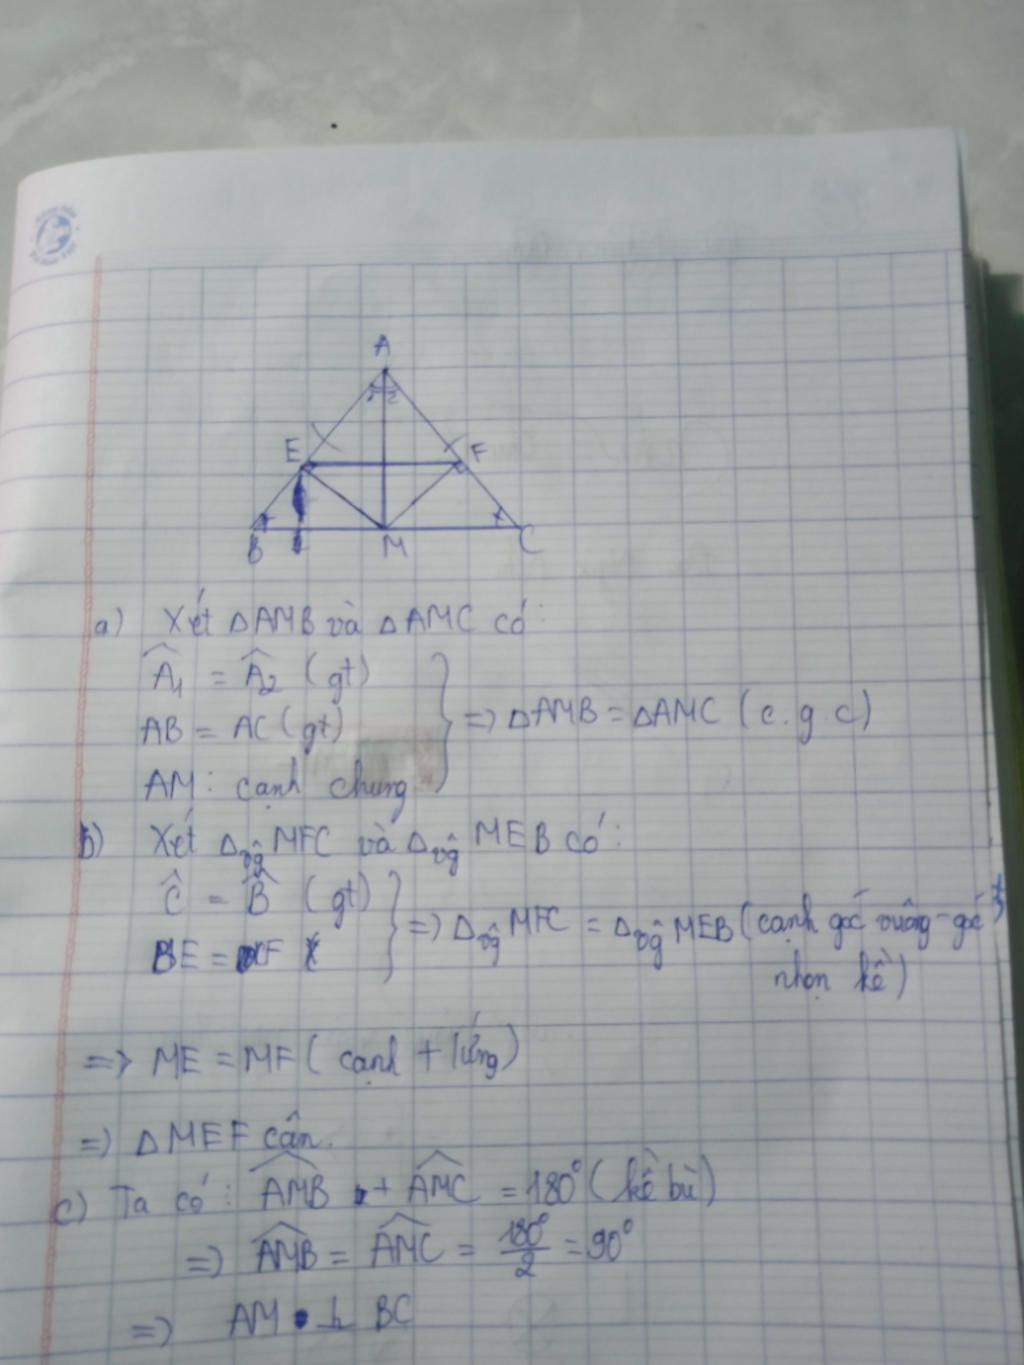 A
1 2
E F
B M C
a) Xét ΔAMB và ΔAMC có:
Â1 = Â2 (gt)
AB = AC (gt) => ΔAMB = ΔAMC (c.g.c)
AM: cạnh chung
b) Xét Δvg MFC và Δvg MEB có:
Ĉ = B̂ (gt)
BE = CF => Δvg MFC = Δvg MEB (cạnh góc vuông - góc
nhọn kề)
=> ME = MF (cạnh t/ứng)
=> ΔMEF cân.
c) Ta có: AMB + AMC = 180° (kề bù)
=> AMB = AMC = 180°/2 = 90°
=> AM ⊥ BC